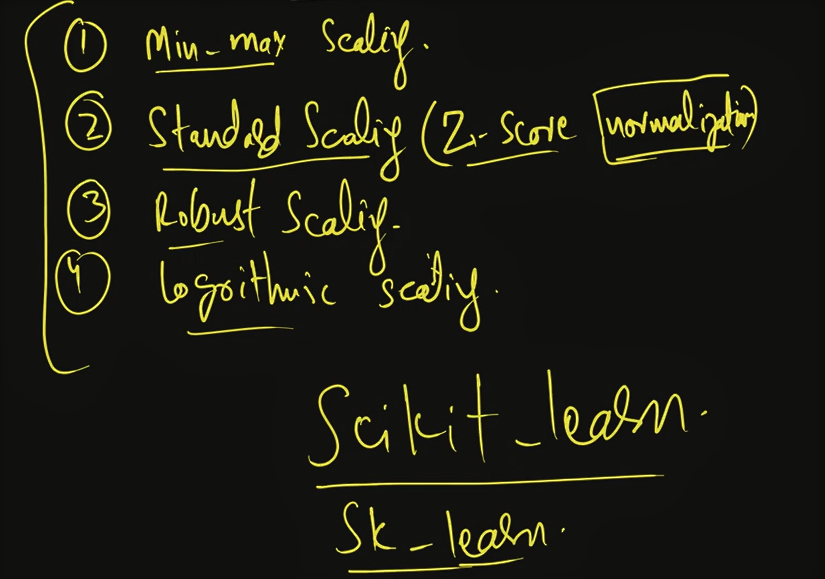 ① Min-max Scaling.
② Standard Scaling (Z-Score normalization)
③ Robust Scaling.
④ Logorithmic scaling.
Scikit-learn.
Sk-learn.